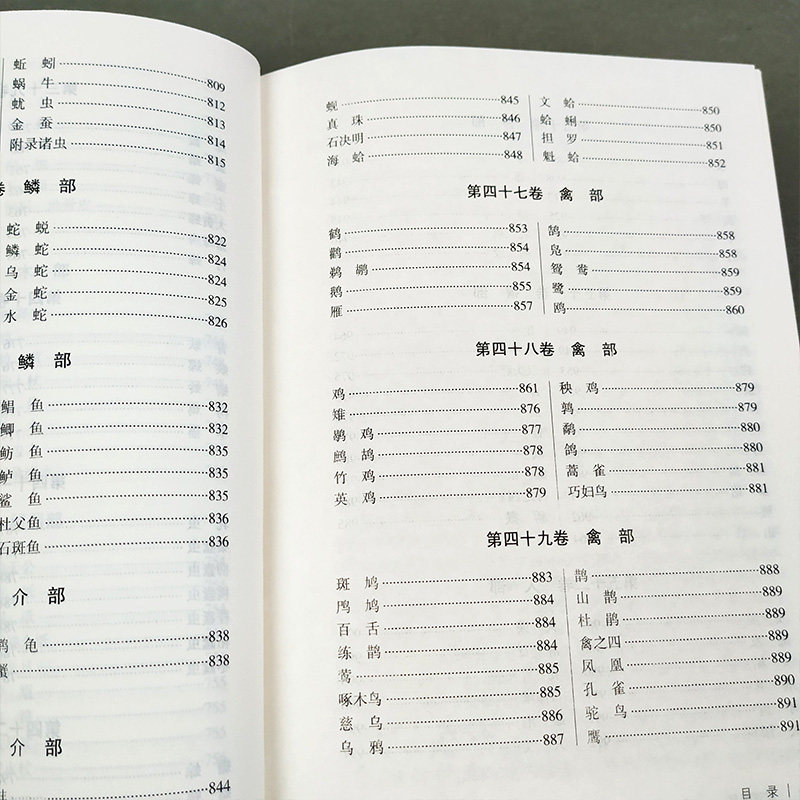 蚯 蚓 809
蜗 牛 812
蚘 虫 813
金 蚕 814
附录诸虫 815
卷 鳞 部
蛇 蜕 822
鳞 蛇 824
乌 蛇 824
金 蛇 825
水 蛇 826
鳞 部
鲳 鱼 832
鲫 鱼 832
鲂 鱼 835
鲈 鱼 835
鲨 鱼 835
杜父鱼 836
石斑鱼 836
介 部
鹗 龟 838
蟹 838
介 部
844
蚬 845
真 珠 846
石决明 847
海 蛤 848
文 蛤 850
蛤 蜊 850
担 罗 851
魁 蛤 852
第四十七卷 禽 部
鹤 853
鹳 854
鹈 鹕 854
鹅 855
雁 857
鹄 858
凫 858
鸳 鸯 859
鹭 859
鸥 860
第四十八卷 禽 部
鸡 861
雉 876
鹖 鸡 877
鹧 鸪 878
竹 鸡 878
英 鸡 879
秧 鸡 879
鹑 879
鹬 880
鸽 880
蒿 雀 881
巧妇鸟 881
第四十九卷 禽 部
斑 鸠 883
鸤 鸠 884
百 舌 884
练 鹊 884
莺 885
啄木鸟 885
慈 乌 886
乌 鸦 887
鹊 888
山 鹊 889
杜 鹃 889
禽之四 889
凤 凰 889
孔 雀 890
驼 鸟 891
鹰 891
目 录